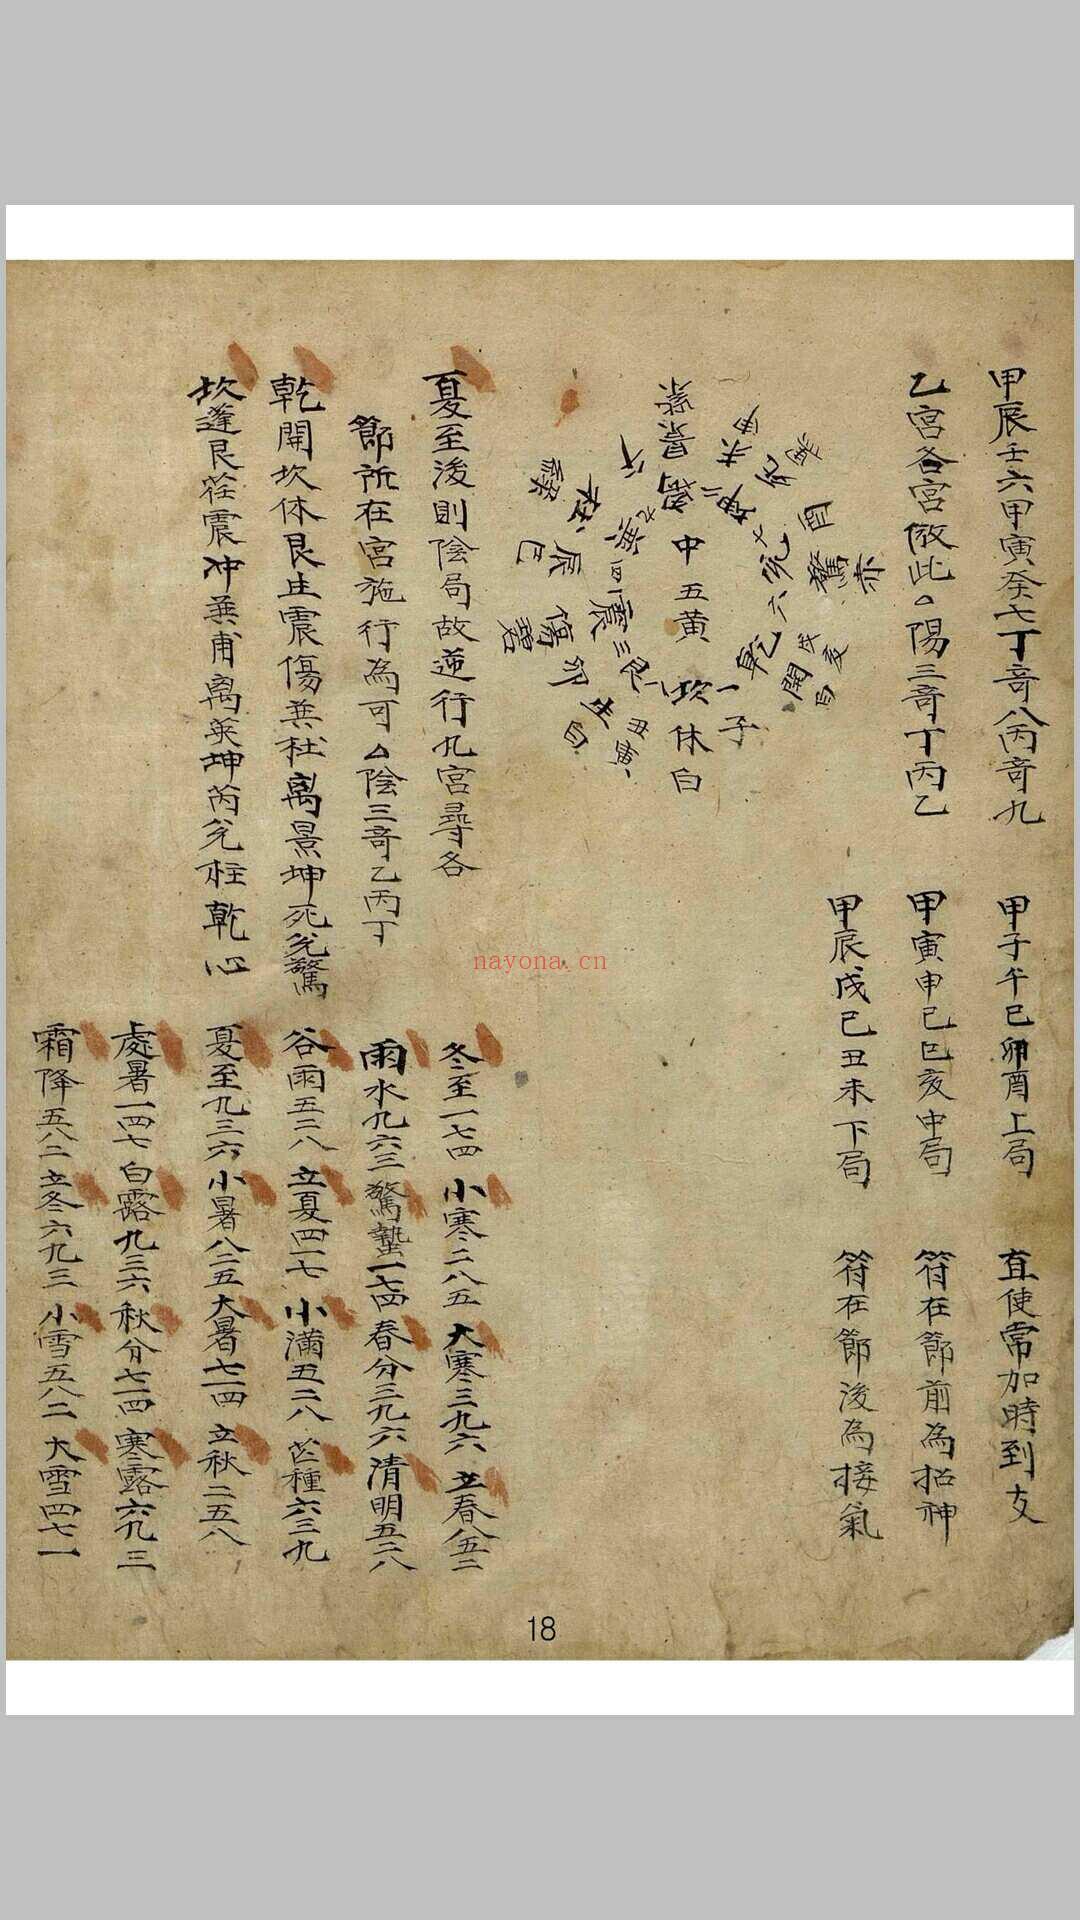 甲辰壬六甲寅癸七丁奇八丙奇九
乙宮各宮倣此△陽三奇丁丙乙
甲子午己卯酉上局
甲寅申己巳亥中局
甲辰戌己丑未下局
直使常加時到支
符在節前為招神
符在節後為接氣
中五黃
坎一子
休白
離九午
景紫
坤二未申
死
兌七酉
驚赤
乾六戌亥
開白
艮八丑寅
生白
震三卯
傷碧
巽四辰巳
杜綠
夏至後則陰局故逆行九宮尋各
節所在宮施行為可△陰三奇乙丙丁
乾開坎休艮生震傷巽杜离景坤死兌驚
坎蓬艮任震冲巽甫离英坤芮兌柱乾心
冬至一七四 小寒二八五 大寒三九六 立春八五二
雨水九六三 驚蟄一七四 春分三九六 清明五二八
谷雨五二八 立夏四一七 小滿五二八 芒種六三九
夏至九三六 小暑八二五 大暑七一四 立秋二五八
處暑一四七 白露九三六 秋分七一四 寒露六九三
霜降五八二 立冬六九三 小雪五八二 大雪四七一
nayona.cn
18